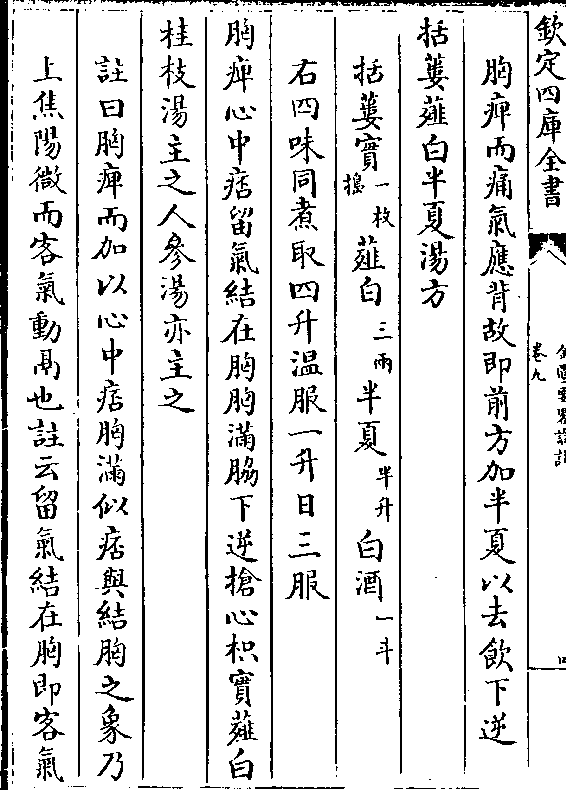 欽定四庫全書
卷九
胸痺而痛氣應背故即前方加半夏以去飲下逆
括蔞薤白半夏湯方
括蔞實一枚搗 薤白三兩 半夏半升 白酒一斗
右四味同煮取四升温服一升日三服
胸痺心中痞留氣結在胸胸滿脇下逆搶心枳實薤白
桂枝湯主之人參湯亦主之
註曰胸痺而加以心中痞胸滿似痞與結胸之象乃
上焦陽微而客氣動鬲也註云留氣結在胸即客氣